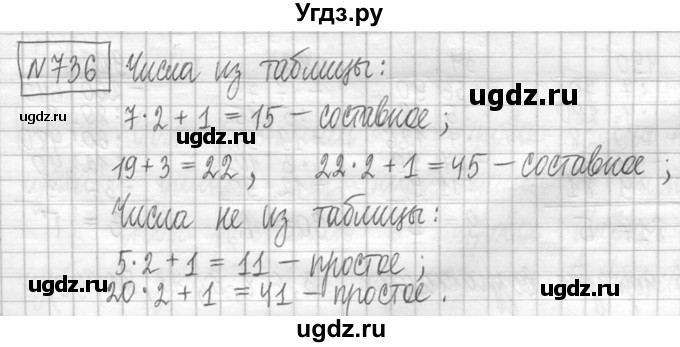 Угдз.ру
№736 Числа из таблицы:
ugdz.ru
ugdz.ru
7·2+1=15 – составное;
ugdz.ru
19+3=22, 22·2+1=45 – составное;
ugdz.ru
Числа не из таблицы:
5·2+1=11 – простое;
ugdz.ru
ugdz.ru
20·2+1=41 – простое.
ugdz.ru